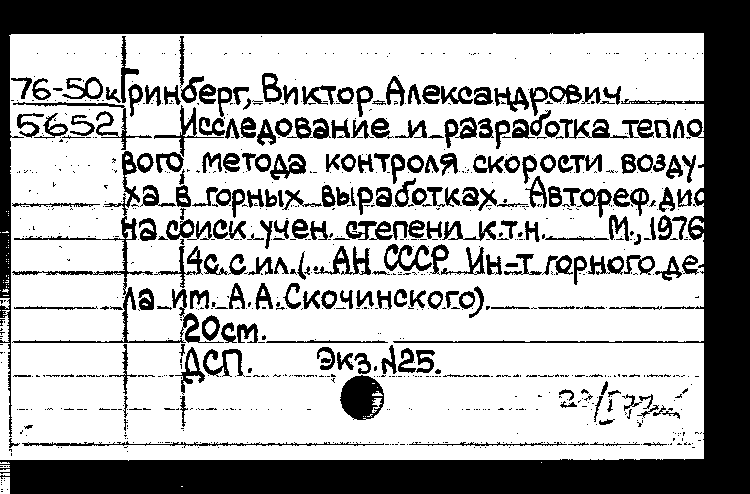 76-50к Гринберг, Виктор Александрович.
5652 Исследование и разработка тепло
вого метода контроля скорости возду-
ха в горных выработках. Автореф. дис
на соиск. учен. степени к.т.н. М., 1976
14с. с ил. (... АН СССР. Ин-т горного де-
ла им. А.А. Скочинского).
20см.
ДСП. Экз. №25.